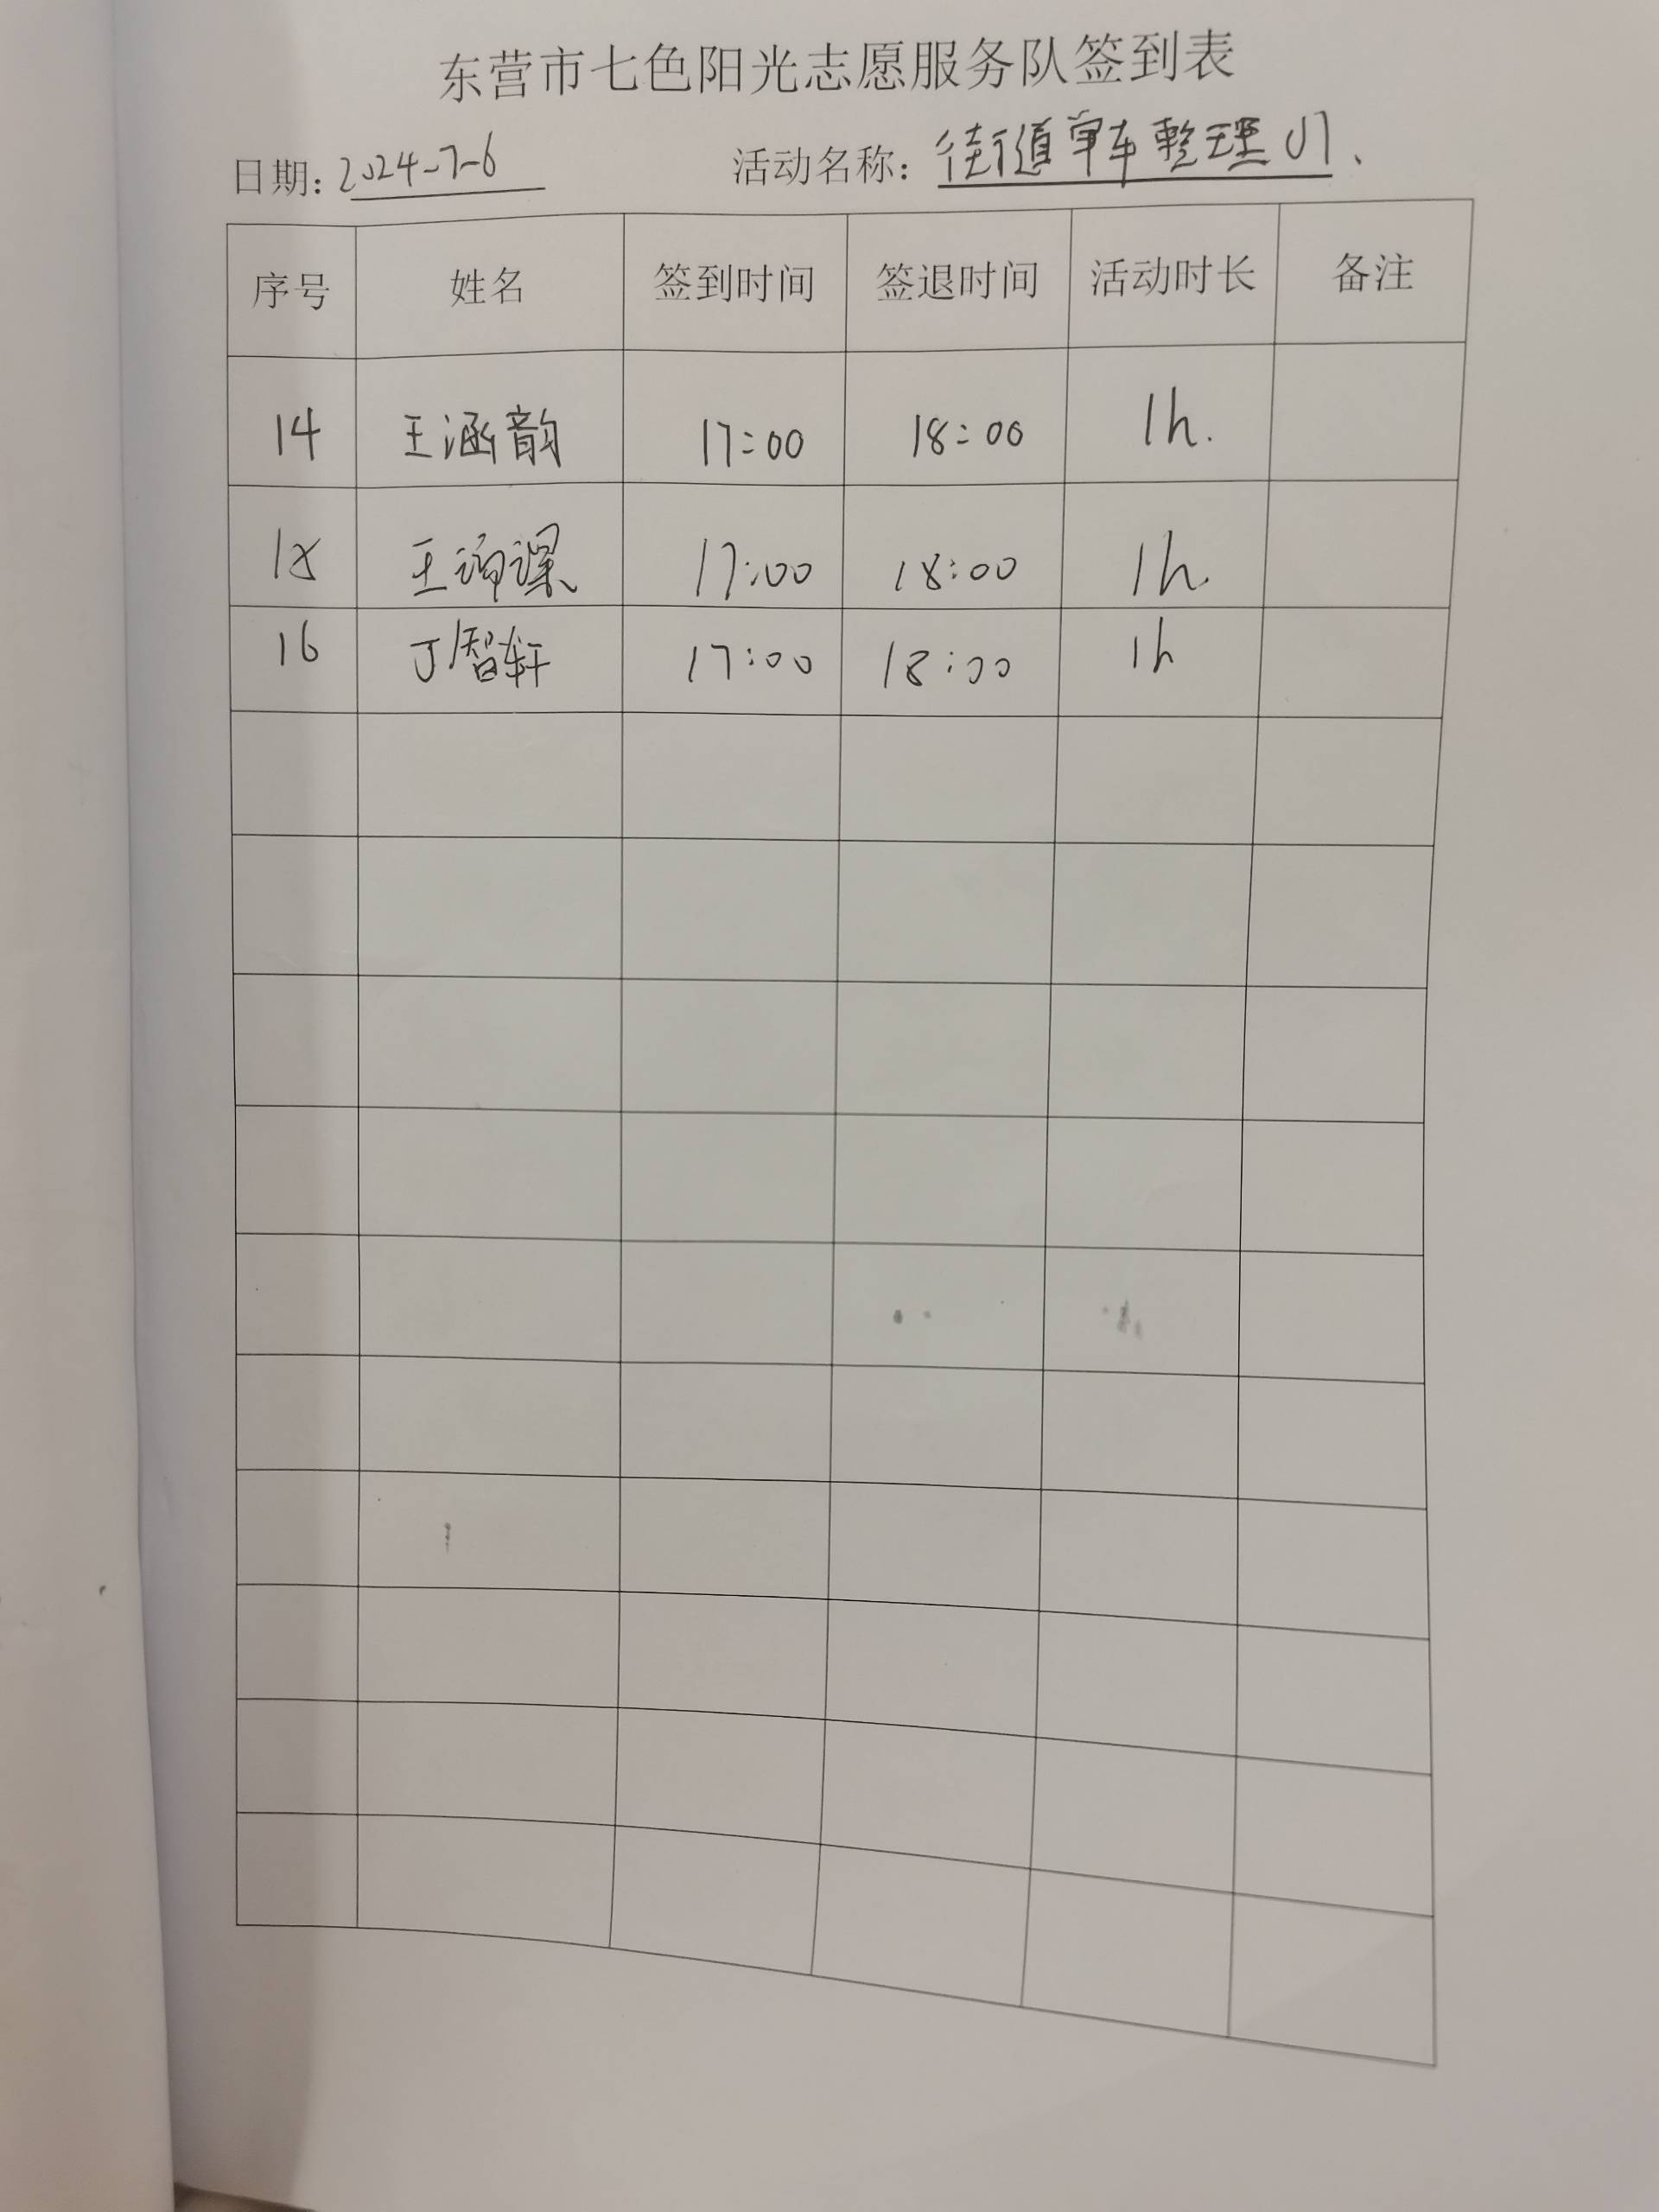 东营市七色阳光志愿服务队签到表
日期: 2024-7-6 活动名称: 街道单车整理01、
序号 姓名 签到时间 签退时间 活动时长 备注
14 王涵韵 17:00 18:00 1h.
15 王 17:00 18:00 1h.
16 丁智轩 17:00 18:00 1h